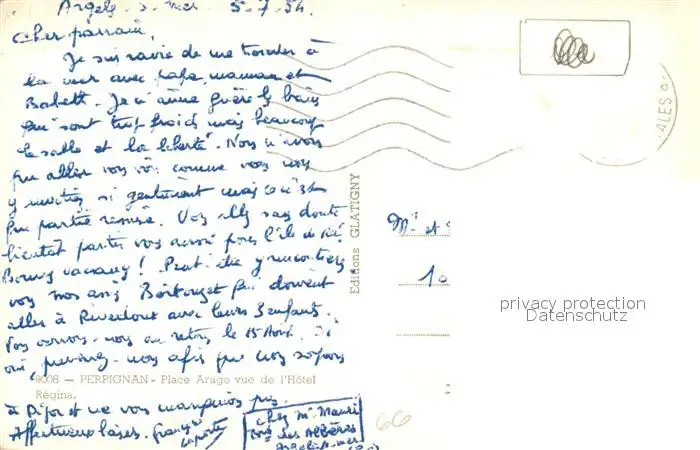 Argelès-s-mer 5-7-54.
Cher parrain,
Je suis ravie de me trouver à
la mer avec papa, maman et
Babeth. Je n'aime guère les bains
qui sont trop froids mais beaucoup
le sable et la liberté. Nous n'avons
pu aller vous voir comme vous nous
y invitiez si gentiment mais ce n'est
que partie remise. Vous allez sans doute
bientôt partir vous aussi pour l'île de Ré.
Bonnes vacances! Peut-être y rencontrerez
vous nos amis qui doivent
aller à Rivedoux avec leurs enfants.
Vous verrons-nous au retour, le 15 Août. Si
oui, prévenez-nous afin que nous soyons
9008 — PERPIGNAN - Place Arago vue de l'Hôtel
Régina.
à Dijon et ne vous manquions pas.
Affectueux baisers. Françoise
chez Mr Mauri
des Albères
Argelès-s-mer
66
Editions GLATIGNY
ALES
Mr et
10
privacy protection
Datenschutz